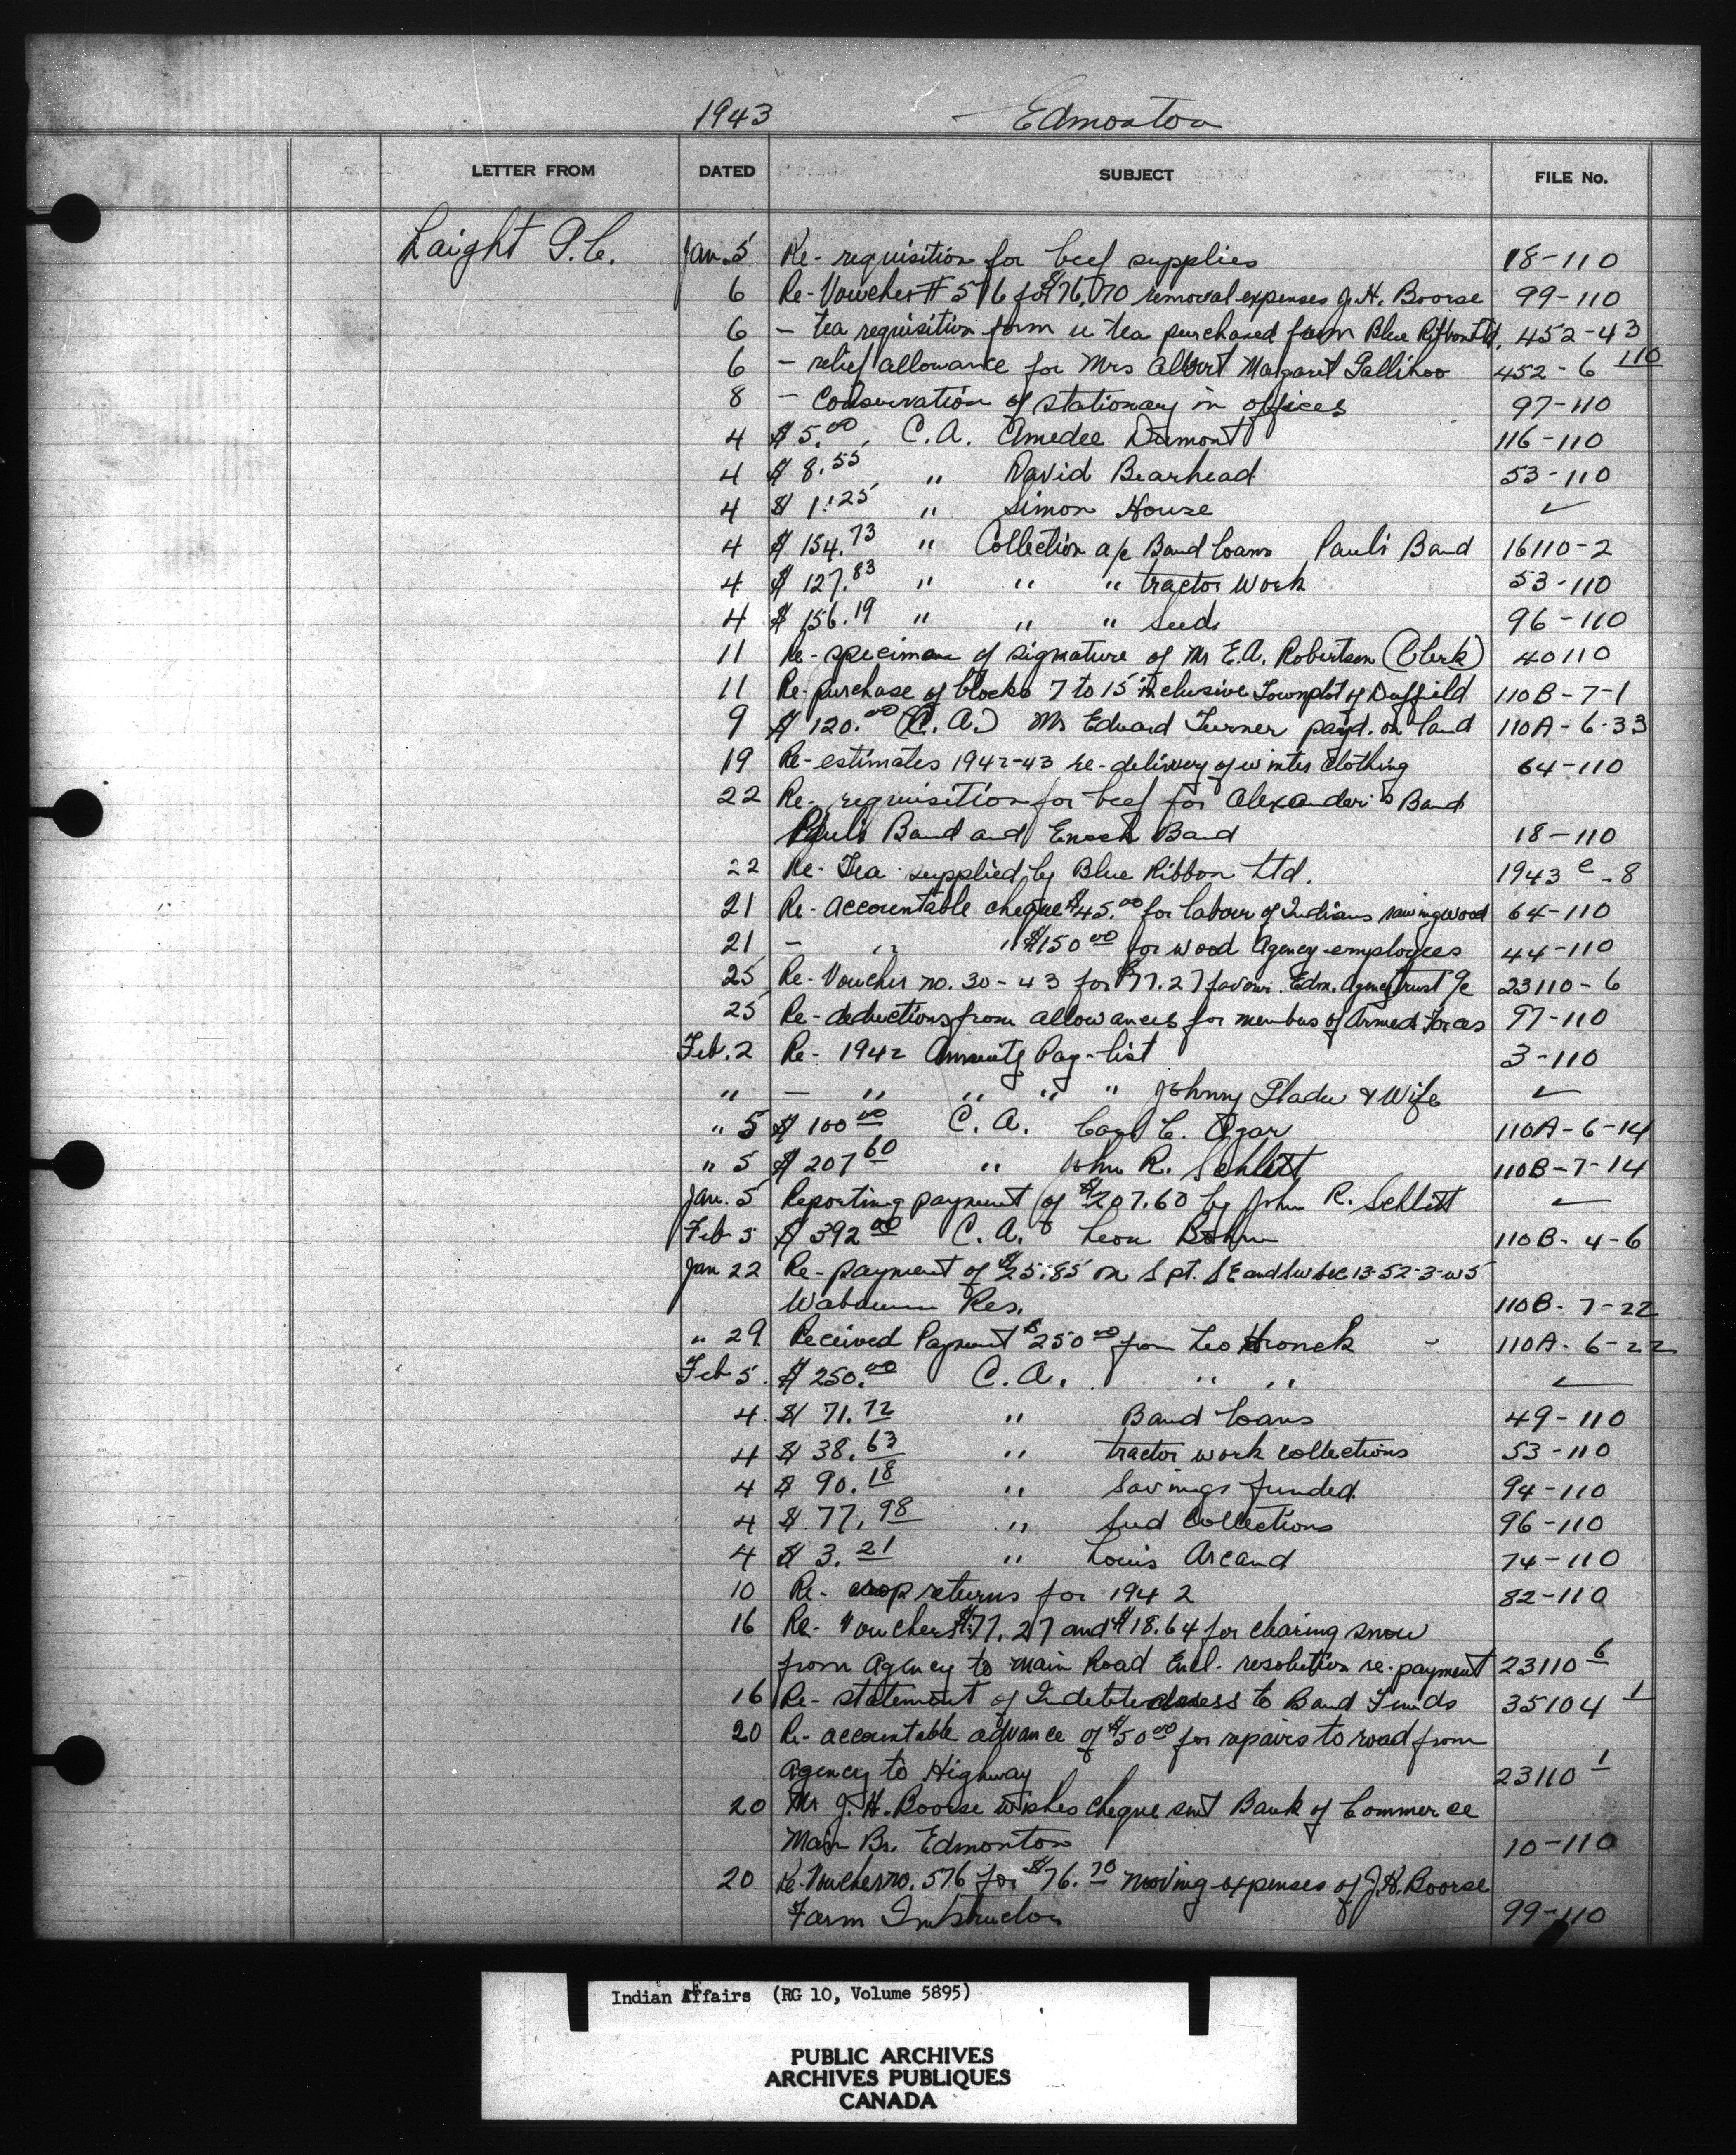 1943 Edmonton
LETTER FROM DATED SUBJECT FILE No.
Laight P.C. Jan. 5 Re- requisition for beef supplies 18-110
6 Re- Voucher # 576 for $76.70 removal expenses J.H. Boorse 99-110
6 - tea requisition form re tea purchased from Blue Ribbon Ltd. 452-43
6 - relief allowance for Mrs Albert Margaret Gallihoo 452-6 110
8 - Conservation of stationary in offices 97-110
4 $ 5.00 C.A. Amedee Dumont 116-110
4 $ 8.55 " David Bearhead 53-110
4 $ 1.25 " Simon House ✓
4 $ 154.73 " Collection a/c Band Loans Paul's Band 16110-2
4 $ 127.83 " " " tractor work 53-110
4 $ 156.19 " " " Seeds 96-110
11 Re- specimen of signature of Mr E.A. Robertson (Clerk) 40110
11 Re- purchase of blocks 7 to 15 inclusive Townplot of Duffield 110B-7-1
9 $ 120.00 (C.A.) Mr Edward Turner payd. on land 110A-6-33
19 Re- estimates 1942-43 re- delivery of winter clothing 64-110
22 Re- requisition for beef for Alexander's Band
Paul's Band and Enoch Band 18-110
22 Re- Tea supplied by Blue Ribbon Ltd. 1943 e-8
21 Re- accountable cheque $45.00 for labour of Indians sawing wood 64-110
21 - " " $150 00 for wood Agency employees 44-110
25 Re- Voucher no. 30-43 for $77.27 favour Edm. Agency trust a/c 23110-6
25 Re- deductions from allowances for members of Armed Forces 97-110
Feb. 2 Re- 1942 Annuity Pay-list 3-110
" - " " " " Johnny Gladu & Wife ✓
" 5 $ 100 00 C.A. Carl C. Agar 110A-6-14
" 5 $ 207 60 " John R. Schlitt 110B-7-14
Jan. 5 Reporting payment of $207.60 by John R. Schlitt ✓
Feb 5 $ 392 00 C.A. Leon Bohm 110B-4-6
Jan 22 Re- payment of $25.85 on S pt. SE and SW Sec 13-52-3-W5
Wabamun Res. 110B-7-22
" 29 Received Payment $250 00 from Leo Hronek 110A-6-22
Feb 5 $ 250.00 C.A. " " ✓
4 $ 71.72 " Band Loans 49-110
4 $ 38.63 " tractor work collections 53-110
4 $ 90.18 " Savings funded 94-110
4 $ 77.98 " Seed Collections 96-110
4 $ 3.21 " Louis Arcand 74-110
10 Re- crop returns for 1942 82-110
16 Re- Vouchers $77.27 and $18.64 for clearing snow
from Agency to Main Road Encl. resolution re-payment 23110 6
16 Re- statement of Indebtedness to Band Funds 35104 1
20 Re- accountable advance of $50 00 for repairs to road from
Agency to Highway 23110 1
20 Mr J.H. Boorse wishes cheque sent Bank of Commerce
Main Br. Edmonton 10-110
20 Re- Voucher no. 576 for $76.70 moving expenses of J.H. Boorse
Farm Instructor 99-110
Indian Affairs (RG 10, Volume 5895)
PUBLIC ARCHIVES
ARCHIVES PUBLIQUES
CANADA